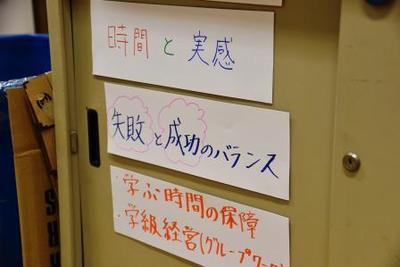 時間と実感
失敗と成功のバランス
・学ぶ時間の保障
・学級経営(グループワーク)